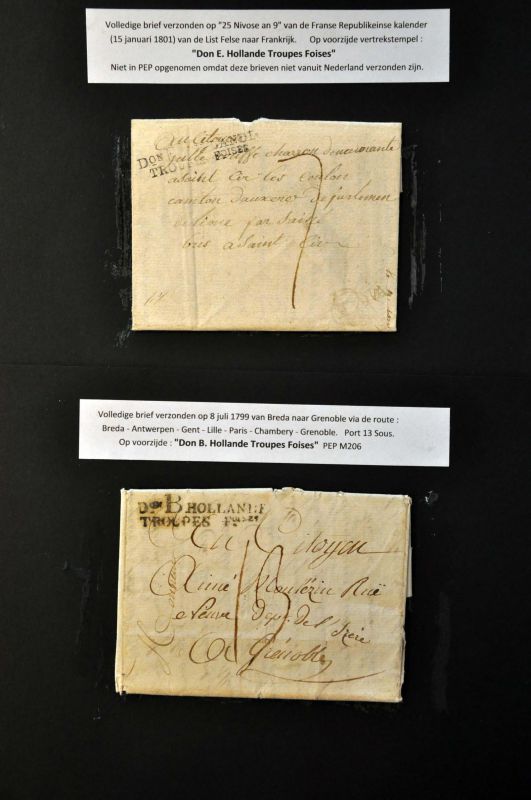 Volledige brief verzonden op "25 Nivose an 9" van de Franse Republikeinse kalender
(15 januari 1801) van de List Felse naar Frankrijk. Op voorzijde vertrekstempel :
"Don E. Hollande Troupes Foises"
Niet in PEP opgenomen omdat deze brieven niet vanuit Nederland verzonden zijn.
Au Citoyen
Don LANDE
TROU FOISES
canton d'auxerre departemen
par
a Saint Cir
7
Volledige brief verzonden op 8 juli 1799 van Breda naar Grenoble via de route :
Breda - Antwerpen - Gent - Lille - Paris - Chambery - Grenoble. Port 13 Sous.
Op voorzijde : "Don B. Hollande Troupes Foises" PEP M206
Don B HOLLANDE
TROUPES Foises
Au Citoyen
13
Aimé Rue
Neuve Dept. de l'Isère
A Grenoble